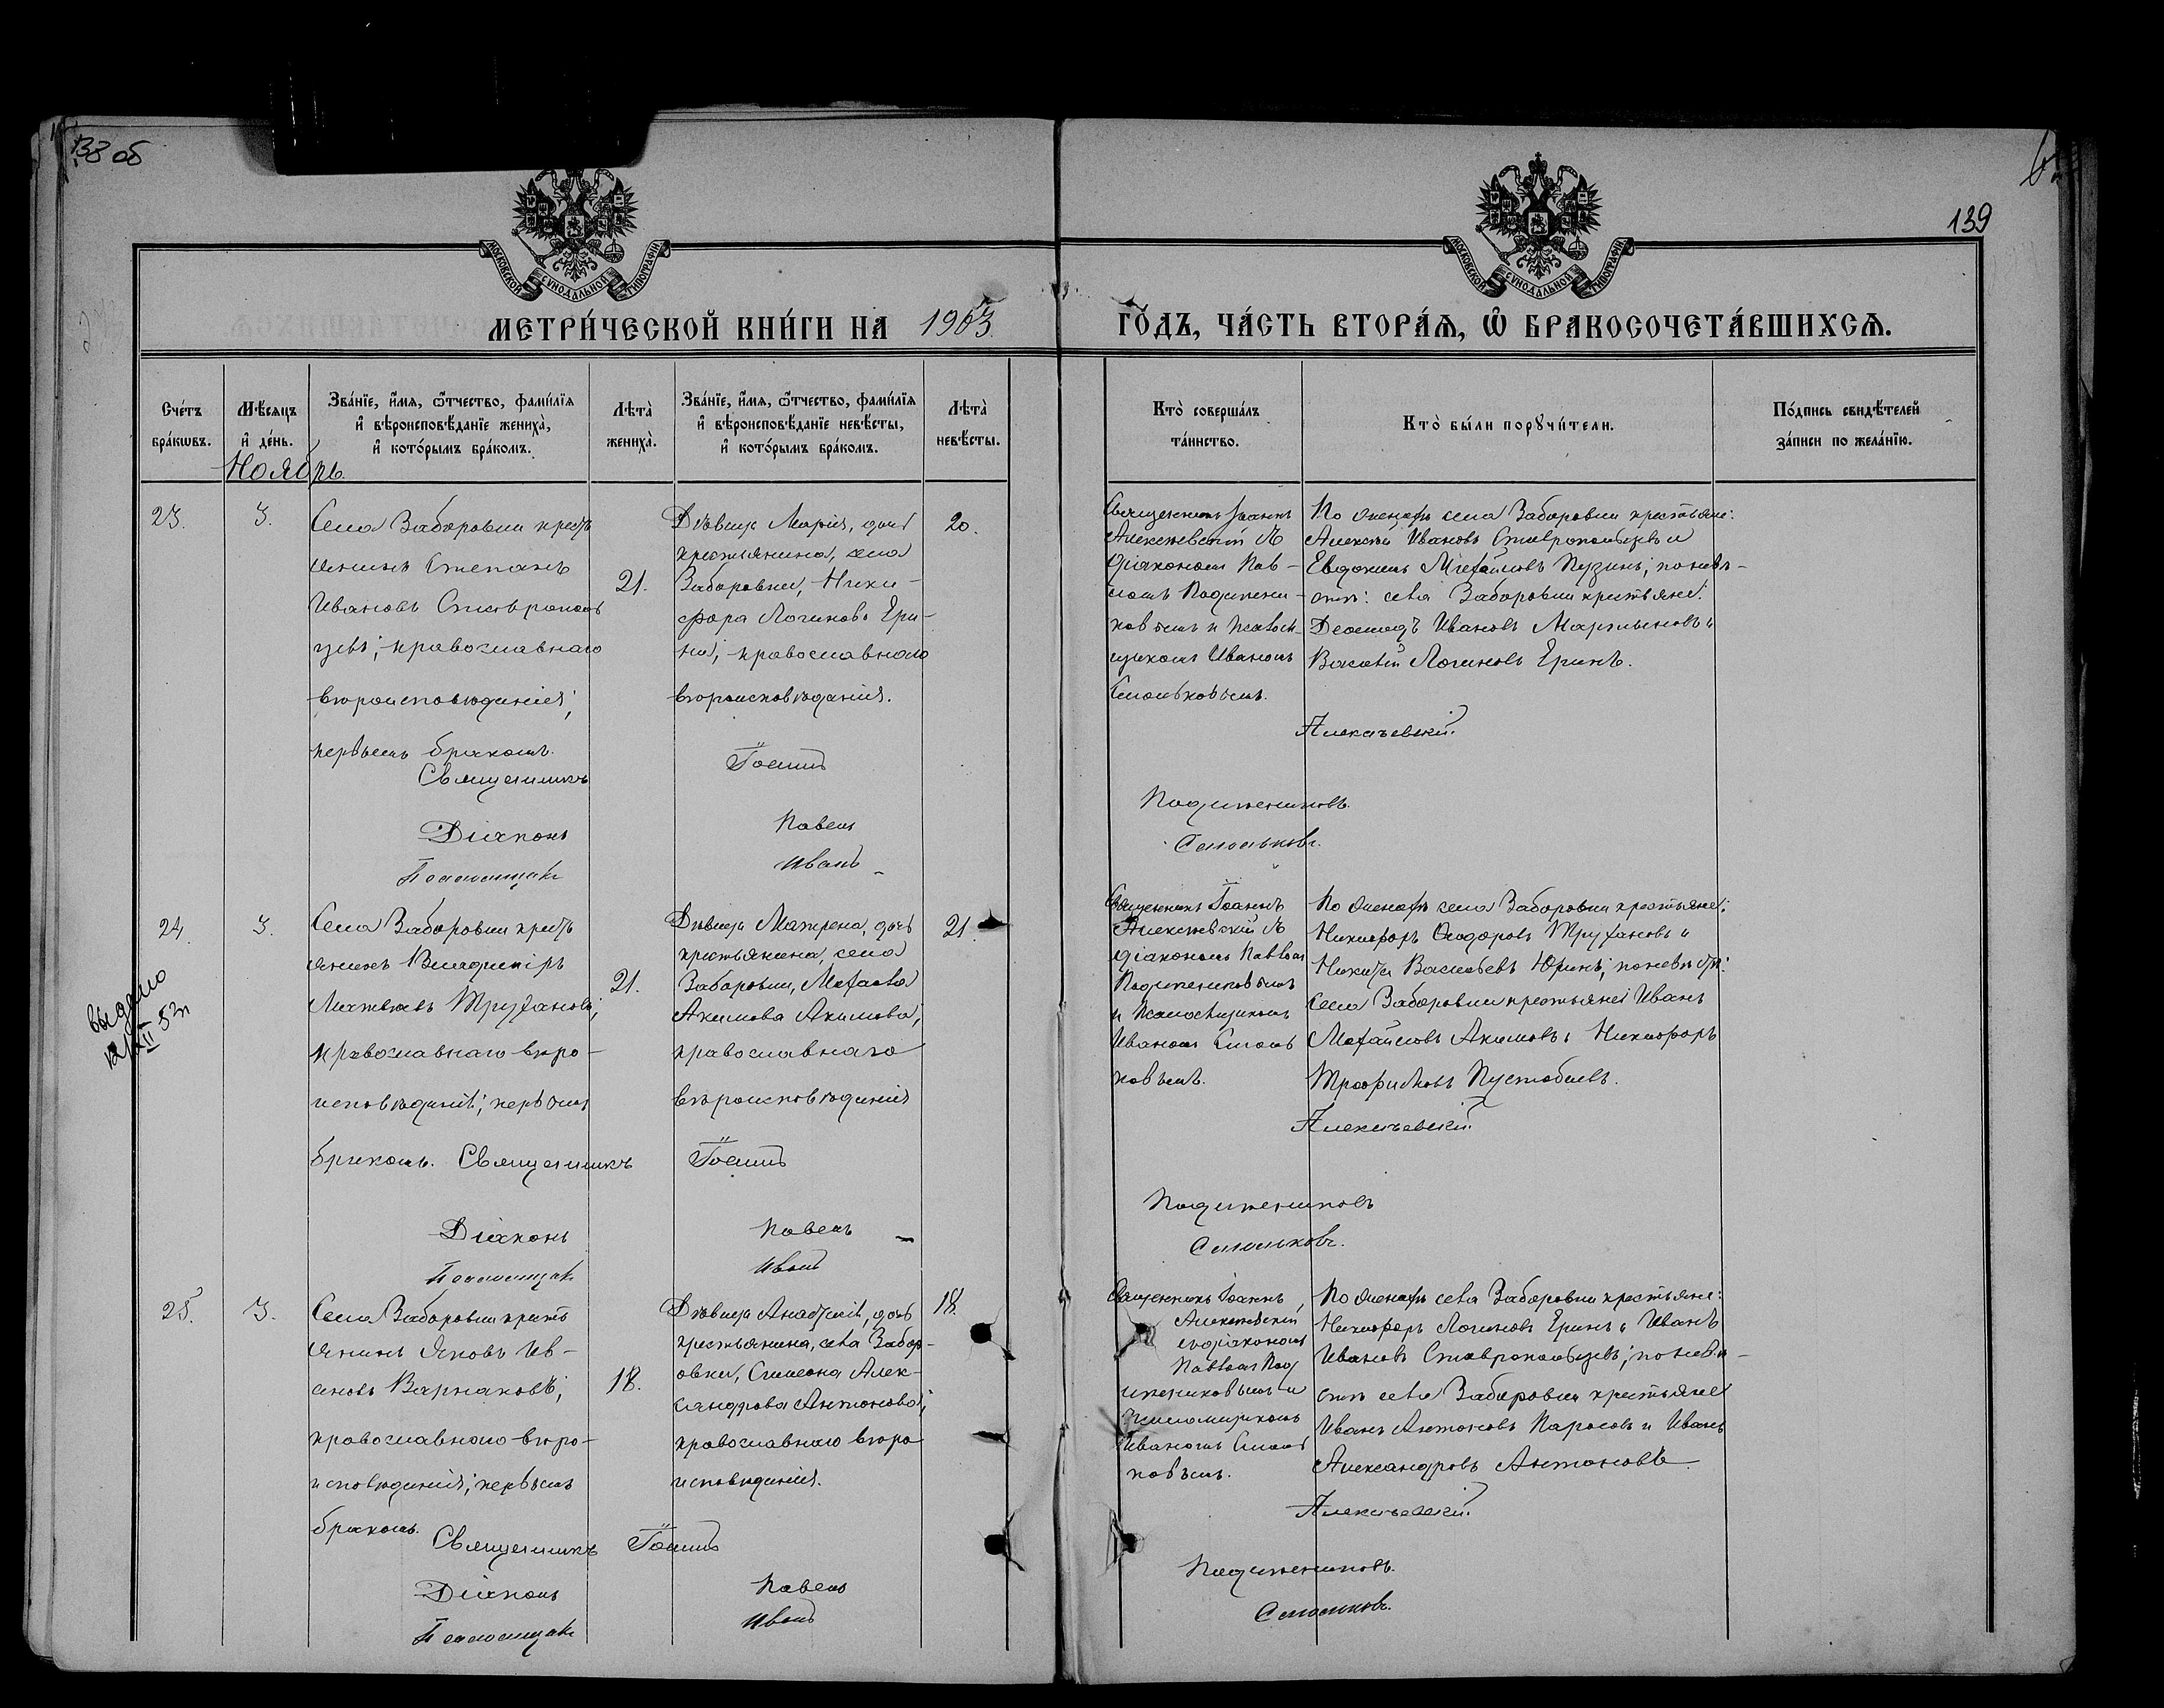 138 об
139
МОСКОВСКОЙ СѴНОДАЛЬНОЙ ТИПОГРАФІИ
МОСКОВСКОЙ СѴНОДАЛЬНОЙ ТИПОГРАФІИ
МЕТРИ́ЧЕСКОЙ КНИ́ГИ НА 1903
ГО́ДЪ, ЧА́СТЬ ВТОРА́Ѧ, Ѡ҆ БРАКОСОЧЕТА́ВШИХСѦ.
Сче́тъ бра́кѡвъ.
Мѣ́сѧцъ и҆ де́нь.
Зва́нїе, и҆́мѧ, ѻ҆́тчество, фами́лїѧ и҆ вѣроисповѣ́данїе жениха̀, и҆ кото́рымъ бра́комъ.
Лѣта̀ жениха̀.
Зва́нїе, и҆́мѧ, ѻ҆́тчество, фами́лїѧ и҆ вѣроисповѣ́данїе невѣ́сты, и҆ кото́рымъ бра́комъ.
Лѣта̀ невѣ́сты.
Кто̀ соверша́лъ та́инство.
Кто̀ бы́ли порꙋчи́тели.
По́дпись свидѣ́телей за́писи по жела́нїю.
Ноябрь.
23.
3.
Села Заборовки кресть
янинъ Степанъ
Ивановъ Ставрополь
цевъ; православнаго
вѣроисповѣданія;
первымъ бракомъ.
21.
Дѣвица Марія, дочь
крестьянина, села
Заборовки, Ники-
фора Логинова Ери-
на; православнаго
вѣроисповѣданія.
20.
Священникъ Іоаннъ
Алексѣевскій съ
діакономъ Пав-
ломъ Подъячени-
ковымъ и псалом-
щикомъ Иваномъ
Смольковымъ.
По женихѣ села Заборовки крестьяне:
Алексѣй Ивановъ Ставропольцевъ и
Евдокимъ Михайловъ Пузинъ; по невѣ-
стѣ: села Заборовки крестьяне:
Ивановъ Мартыновъ и
Василій Логиновъ Еринъ.
Священникъ Іоаннъ Алексѣевскій.
Діаконъ Павелъ
Псаломщикъ Иванъ Смольковъ.
24.
3.
Села Заборовки кресть
янинъ Владиміръ
Матвѣевъ Труфановъ;
православнаго вѣро-
исповѣданія; первымъ
бракомъ.
21.
Дѣвица Матрена, дочь
крестьянина, села
Заборовки, Михаила
Акимова Акимова;
православнаго
вѣроисповѣданія
21.
Священникъ Іоаннъ
Алексѣевскій съ
діакономъ Павломъ
и псаломщикомъ
Иваномъ Смоль
ковымъ.
По женихѣ села Заборовки крестьяне:
Никифоръ Ѳеодоровъ Труфановъ и
Никита Васильевъ Юринъ; по невѣстѣ:
села Заборовки крестьяне Иванъ
Михайловъ Акимовъ и Никифоръ
Трофимовъ Пустобаевъ.
Священникъ Іоаннъ Алексѣевскій.
Діаконъ Павелъ
Псаломщикъ Иванъ Смольковъ.
выдано
12/XII 53г
25.
3.
Села Заборовки кресть
янинъ Яковъ Ив-
ановъ Варлаковъ;
православнаго вѣро-
исповѣданія; первымъ
бракомъ.
18.
Дѣвица Анастасія, дочь
крестьянина, села Забор-
овки, Симеона Алек-
сандрова Антонова;
православнаго вѣро
исповѣданія.
18.
Священникъ Іоаннъ
Алексѣевскій
съ діакономъ
Павломъ
псаломщикомъ
Иваномъ Смоль
ковымъ.
По женихѣ села Заборовки крестьяне:
Никифоръ Логиновъ Еринъ и Иванъ
Ивановъ Ставропольцевъ; по невѣ-
стѣ села Заборовки крестьяне
Иванъ Антоновъ и Иванъ
Александровъ Антоновъ.
Священникъ Іоаннъ Алексѣевскій.
Діаконъ Павелъ
Псаломщикъ Иванъ Смольковъ.